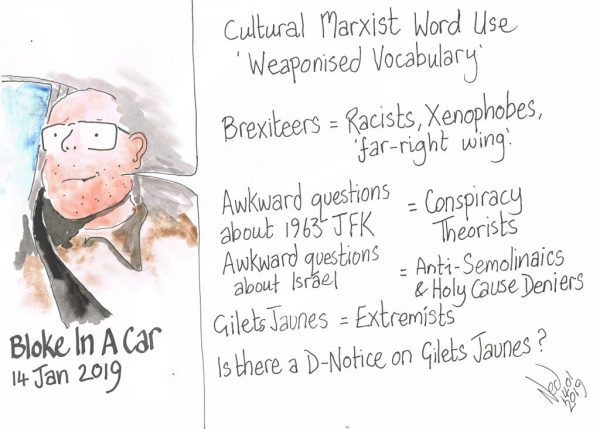 Cultural Marxist Word Use
'Weaponised Vocabulary'
Brexiteers = Racists, Xenophobes,
'far-right wing'.
Awkward questions
about 1963 JFK
= Conspiracy
Theorists
Awkward questions
about Israel
= Anti-Semolinaics
& Holy Cause Deniers
Gilets Jaunes = Extremists
Is there a D-Notice on Gilets Jaunes?
Bloke In A Car
14 Jan 2019
14.01
2019